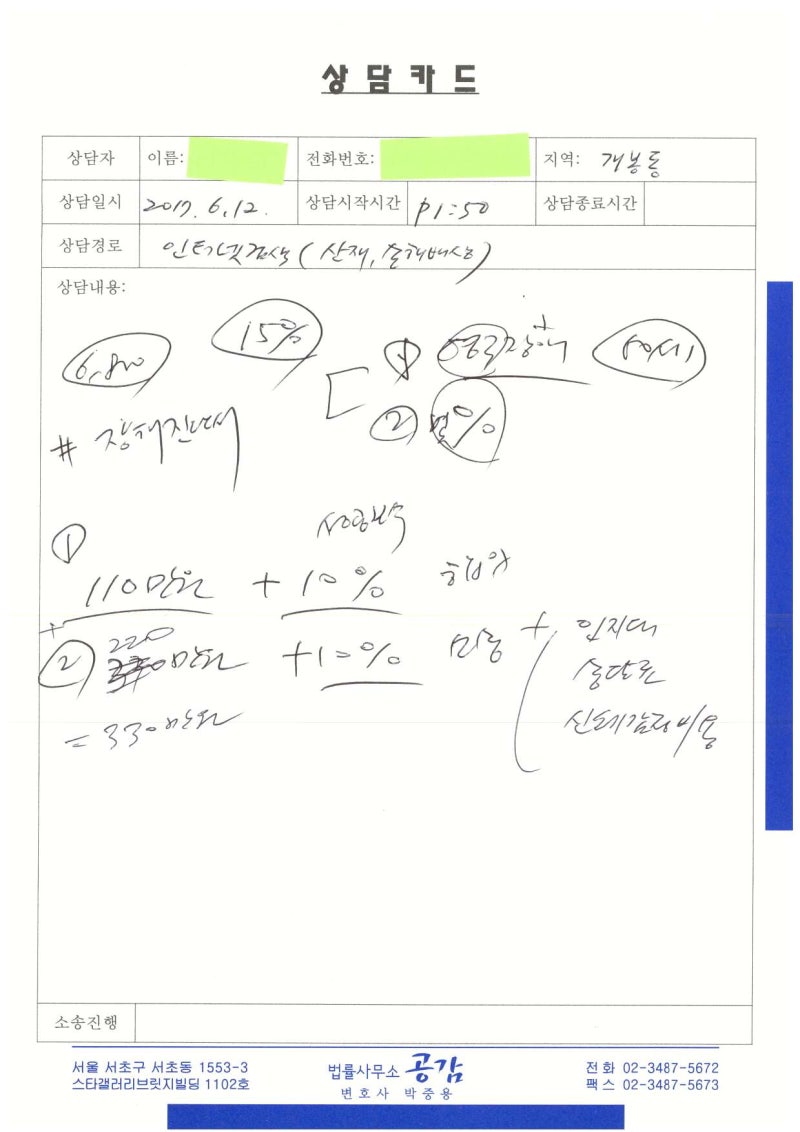 상담카드
상담자 이름: 전화번호: 지역: 개봉동
상담일시 2017. 6. 12. 상담시작시간 P1:50 상담종료시간
상담경로 인터넷검색 ( 산재, 손해배상)
상담내용:
6,800 15% ① 영구장애
② 몇%
# 장해진단서
①
110만원 + 10% 합의
+
② 220만원 +10% 민송 + 인지대
송달료
= 330만원 신체감정비용
소송진행
서울 서초구 서초동 1553-3
스타갤러리브릿지빌딩 1102호
법률사무소 공감
변호사 박중용
전화 02-3487-5672
팩스 02-3487-5673